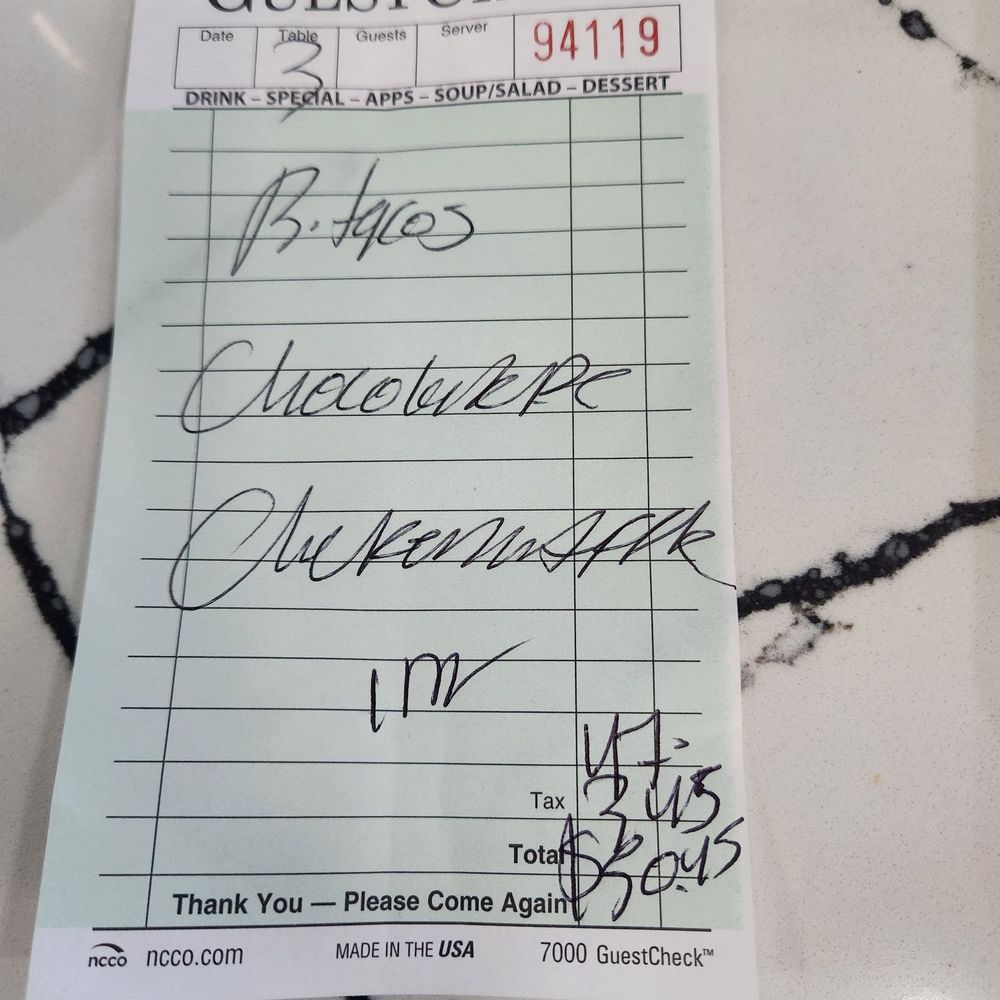 Date Table Guests Server 94119
3
DRINK – SPECIAL – APPS – SOUP/SALAD – DESSERT
B. tacos
Chocolate
Chicken
1
47.
Tax 3 45
Total $50.45
Thank You — Please Come Again
ncco ncco.com MADE IN THE USA 7000 GuestCheck™